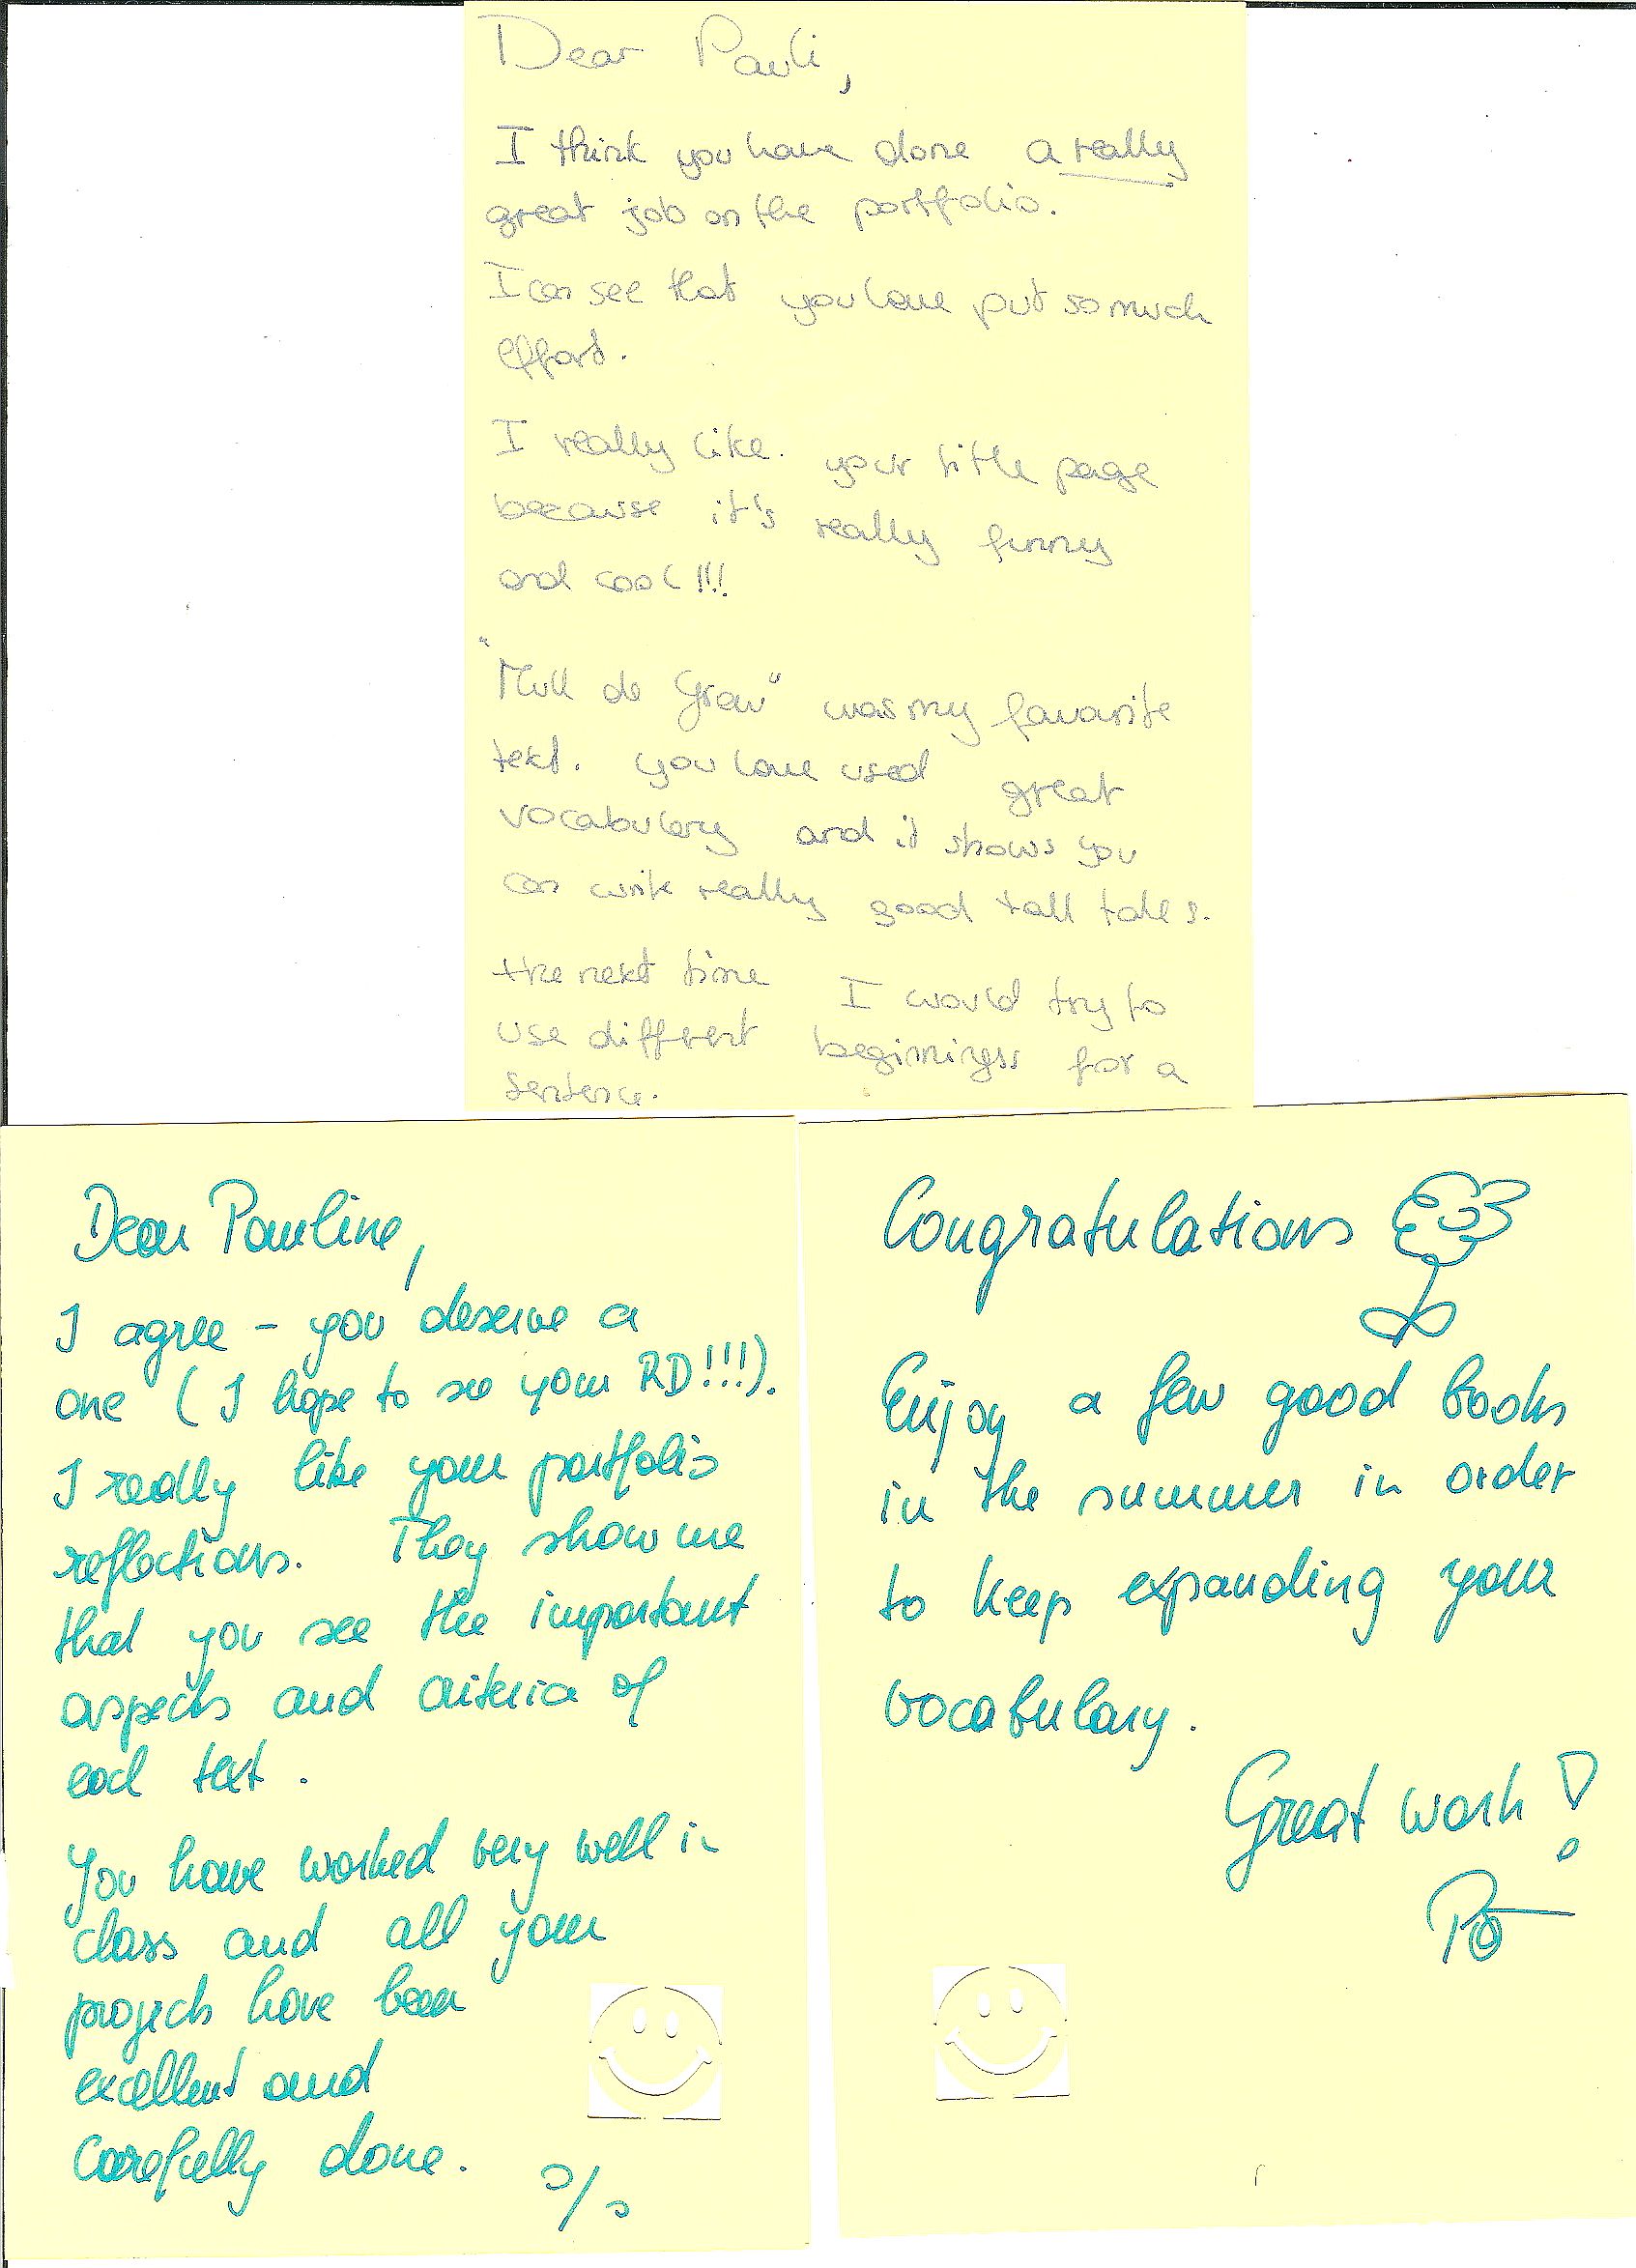 Dear Pauli,
I think you have done a really
great job on the portfolio.
I can see that you have put so much
effort.
I really like. your title page
because it's really funny
and cool!!!
"Mull de Grau" was my favorite
text. you have used great
vocabulary and it shows you
can write really good tall tales.
the next time I would try to
use different beginningss for a
sentence.
Dear Pauline,
I agree – you deserve a
one (I hope to see your RD!!!).
I really like your portfolio
reflections. They show me
that you see the important
aspects and criteria of
each text.
You have worked very well in
class and all your
projects have been
excellent and
carefully done.
Congratulations
Enjoy a few good books
in the summer in order
to keep expanding your
vocabulary.
Great work!